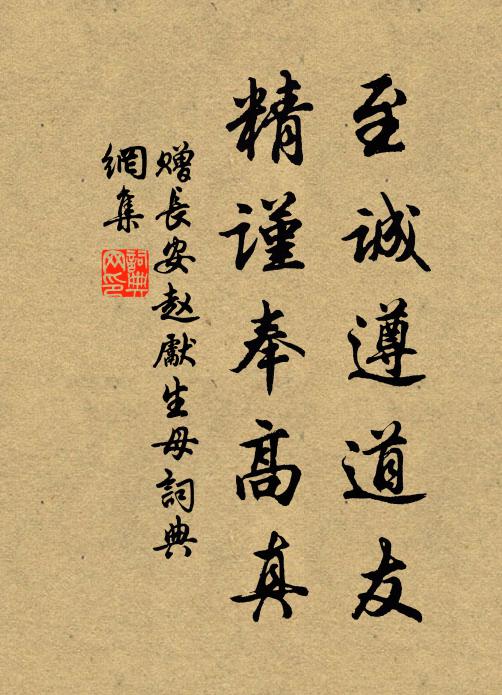 至诚遵道友
精谨奉高真
赠长安赵献生母词典
网集
词典
网印